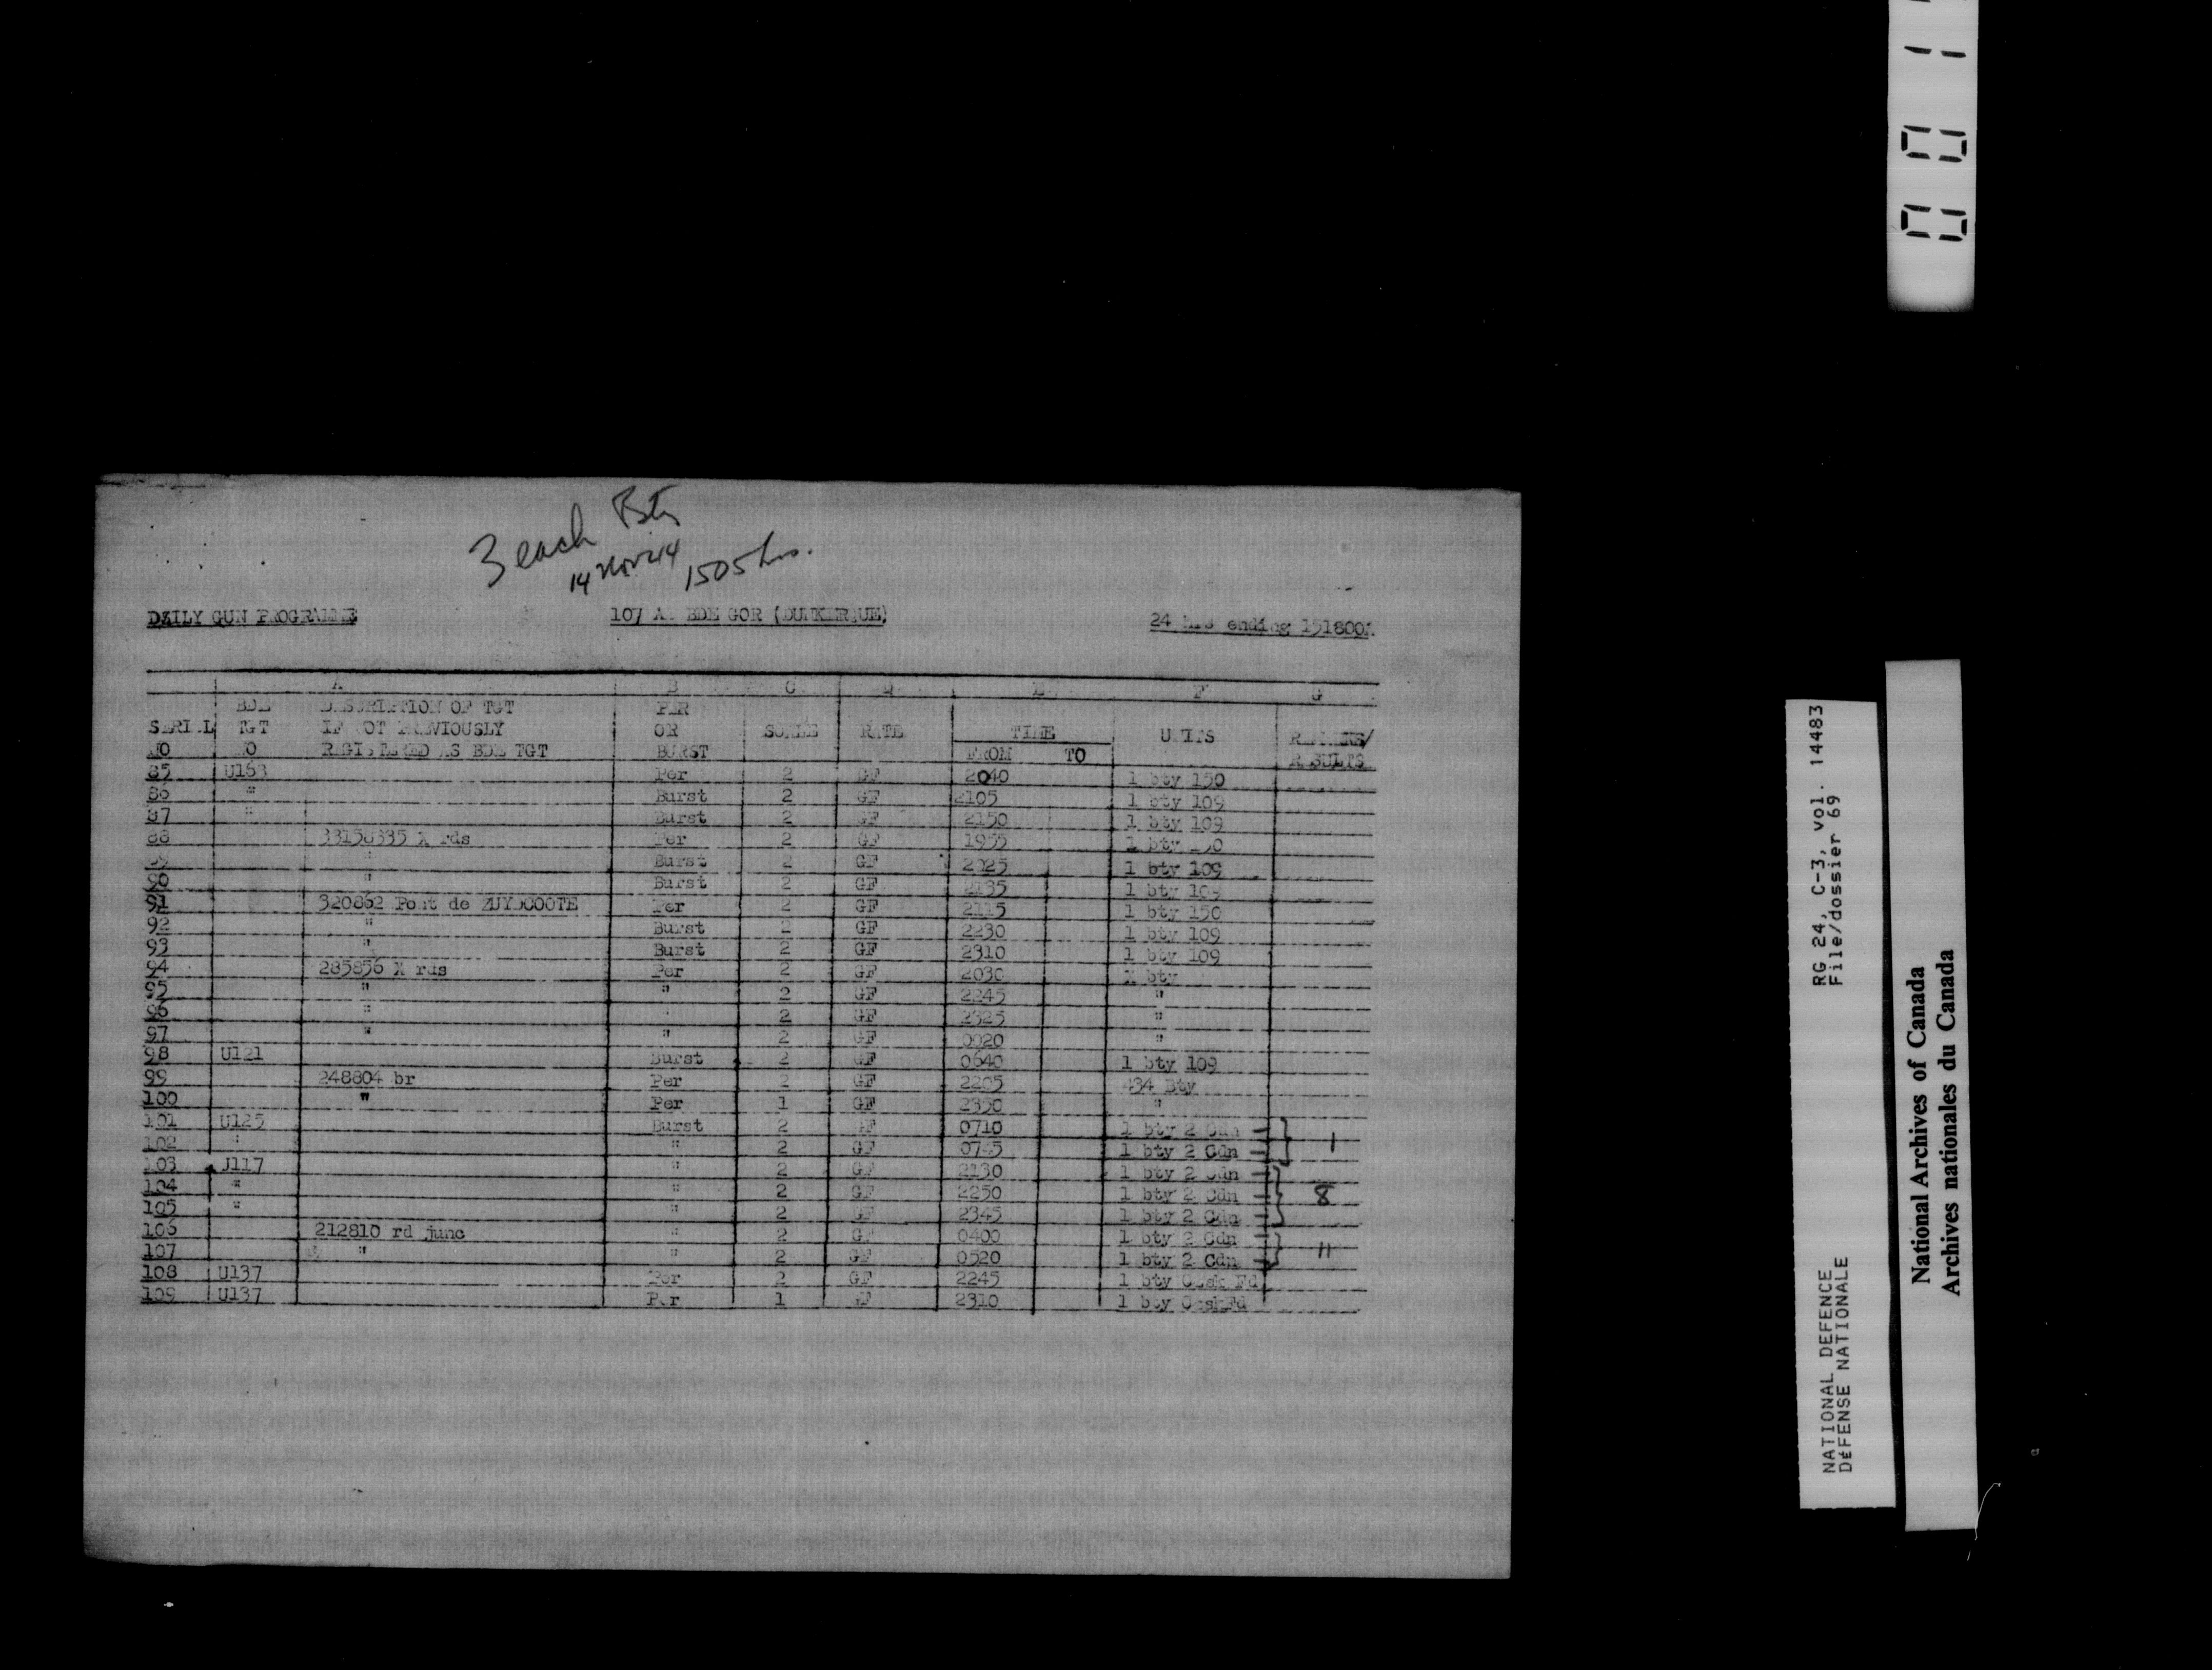 3 each Bty
14 Nov 44 1505 hrs.
DAILY GUN PROGRAMME 107 AA BDE GOR (DUNKERQUE) 24 hrs ending 151800A
A B C D E F G
BDE DESCRIPTION OF TGT PER
SERIAL TGT IF NOT PREVIOUSLY OR SCALE RATE TIME UNITS REMARKS/
NO NO REGISTERED AS BDE TGT BURST FROM TO RESULTS
85 U163 Per 2 GF 2040 1 bty 150
86 " Burst 2 GF 2105 1 bty 109
87 " Burst 2 GF 2150 1 bty 109
88 33158335 X rds Per 2 GF 1955 1 bty 150
89 " Burst 2 GF 2025 1 bty 109
90 " Burst 2 GF 2135 1 bty 109
91 320862 Pont de ZUYDCOOTE Per 2 GF 2115 1 bty 150
92 " Burst 2 GF 2230 1 bty 109
93 " Burst 2 GF 2310 1 bty 109
94 285856 X rds Per 2 GF 2030 1 bty
95 " " 2 GF 2245 "
96 " " 2 GF 2325 "
97 " " 2 GF 0020 "
98 U121 Burst 2 GF 0640 1 bty 109
99 248804 br Per 2 GF 2205 434 Bty
100 " Per 1 GF 2350 "
101 U125 Burst 2 GF 0710 1 bty 2 Cdn
102 " " 2 GF 0745 1 bty 2 Cdn 1
103 J117 " 2 GF 2130 1 bty 2 Cdn
104 " " 2 GF 2250 1 bty 2 Cdn 8
105 " " 2 GF 2345 1 bty 2 Cdn
106 212810 rd junc " 2 GF 0400 1 bty 2 Cdn
107 " " 2 GF 0520 1 bty 2 Cdn 11
108 U137 Per 2 GF 2245 1 bty Czsk Fd
109 U137 Per 1 GF 2310 1 bty Czsk Fd
NATIONAL DEFENCE RG 24, C-3, vol. 14483
DéFENSE NATIONALE File/dossier 69
National Archives of Canada
Archives nationales du Canada